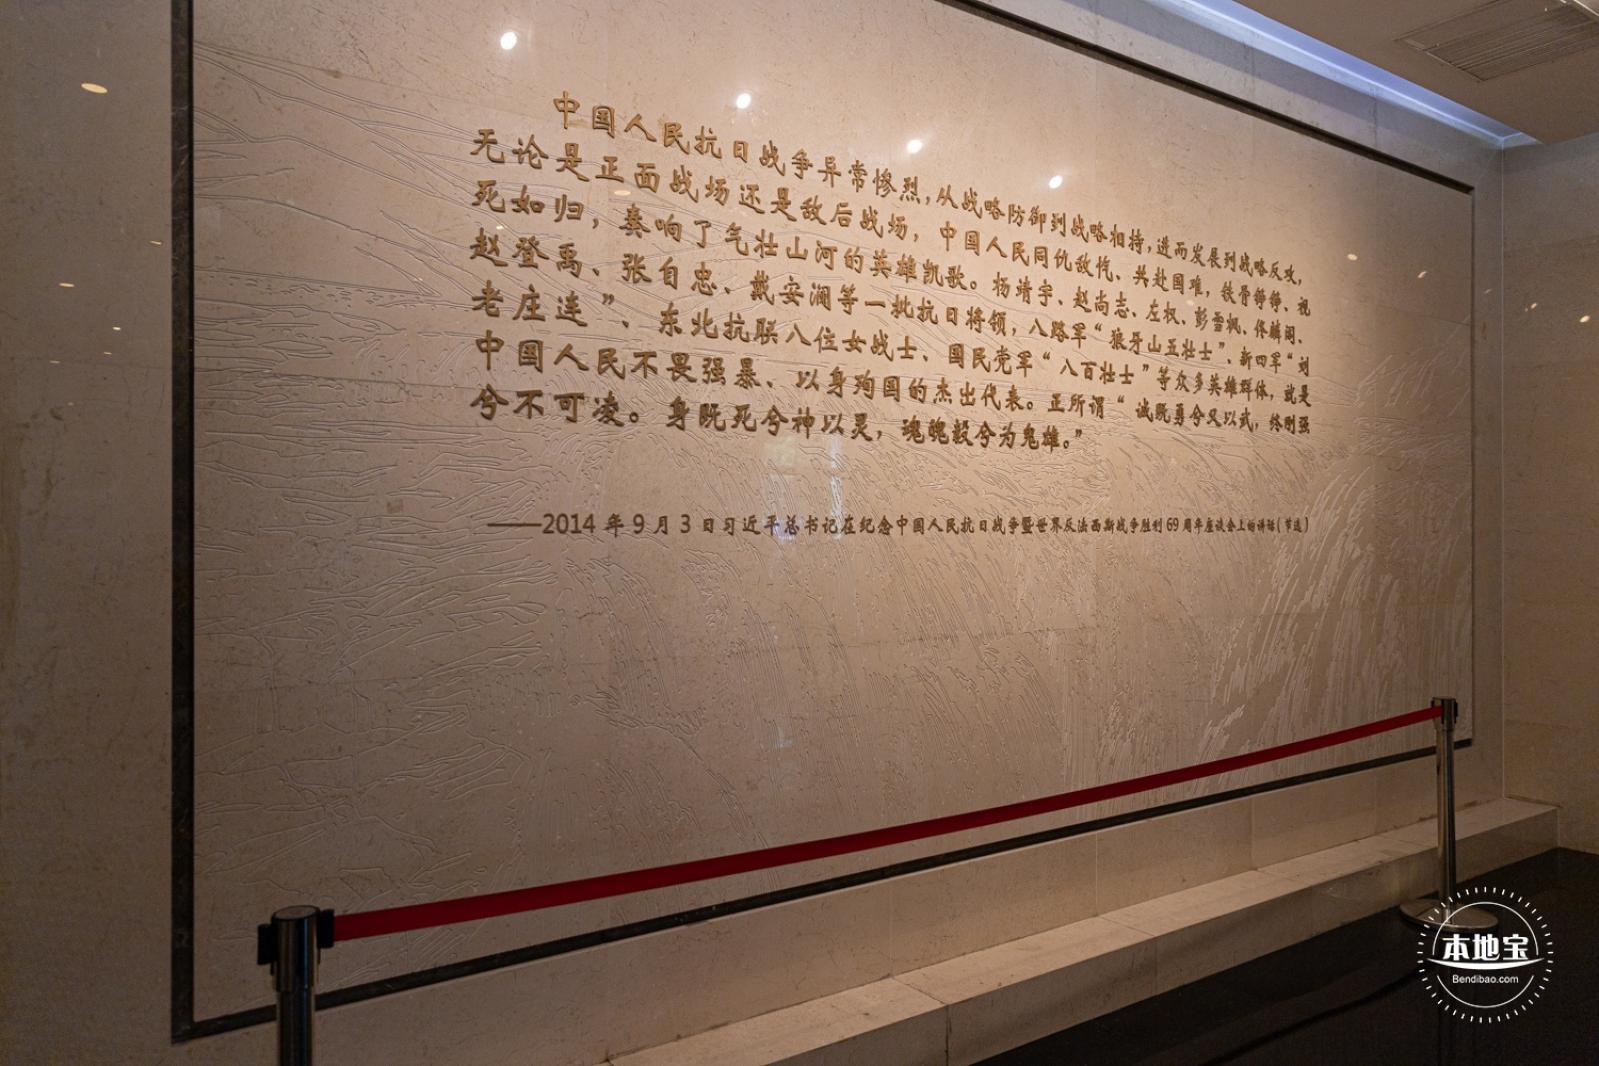 中国人民抗日战争异常惨烈，从战略防御到战略相持，进而发展到战略反攻，
无论是正面战场还是敌后战场，中国人民同仇敌忾、共赴国难，铁骨铮铮、视
死如归，奏响了气壮山河的英雄凯歌。杨靖宇、赵尚志、左权、彭雪枫、佟麟阁、
赵登禹、张自忠、戴安澜等一批抗日将领，八路军“狼牙山五壮士”、新四军“刘
老庄连”、东北抗联八位女战士、国民党军“八百壮士”等众多英雄群体，就是
中国人民不畏强暴、以身殉国的杰出代表。正所谓“诚既勇兮又以武，终刚强
兮不可凌。身既死兮神以灵，魂魄毅兮为鬼雄。”
——2014 年 9 月 3 日习近平总书记在纪念中国人民抗日战争暨世界反法西斯战争胜利 69 周年座谈会上的讲话（节选）
本地宝
Bendibao.com